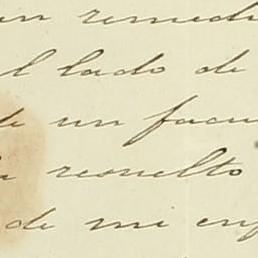 un remedi
al lado de
de un facu
resuelto
de mi enf